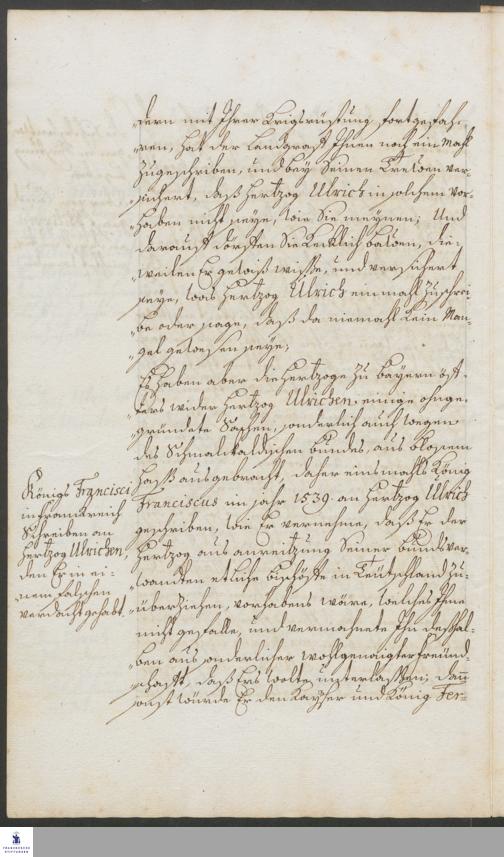 „dern mit Ihrer Krigsrüstung fortgefah-
„ren, hat der Landgraff Ihnen noch ein Mahl
zugeschriben, und bey Seinen Trewen ver-
„sichert, daß Hertzog Ulrich in solchem Vor-
„haben nicht seye, wie Sie meynen; Und
darauff dörffen Sie Kecklich bawen, die-
„weilen Er gewiß wisse, und versichert
seye, was Hertzog Ulrich einmahl zuschrei-
„be oder sage, daß da niemahl kein Man-
„gel gewesen seye;
Es haben aber die Hertzoge zu Bayern öff-
„ters wider Hertzog Ulrichen einige ohnge-
„gründete Sachen, sonderlich auch wegen
des Schmalkaldischen Bundes, aus blosem
Haß ausgebracht, daher einsmahls König
Franciscus im jahr 1539. an Hertzog Ulrich
geschriben, wie Er vernehme, daß Er der
Hertzog aus anreitzung Seiner Bundsver-
„wandten etliche Bischöffe in Teütschland zu-
„überziehen, vorhabens wäre, welches Ihme
nicht gefalle, und vermahnete Ihn deßhal-
„ben aus sonderlicher wohlgenaigter freünd-
„schafft, daß Ers wolte unterlassen; dan
sonst würde Er den Kayser und König Fer-
Königs Francisci
in Franckreich
Schreiben an
Hertzog Ulrichen,
den Er in ei-
nem falschen
verdacht gehabt.
FRANCKESCHE
STIFTUNGEN